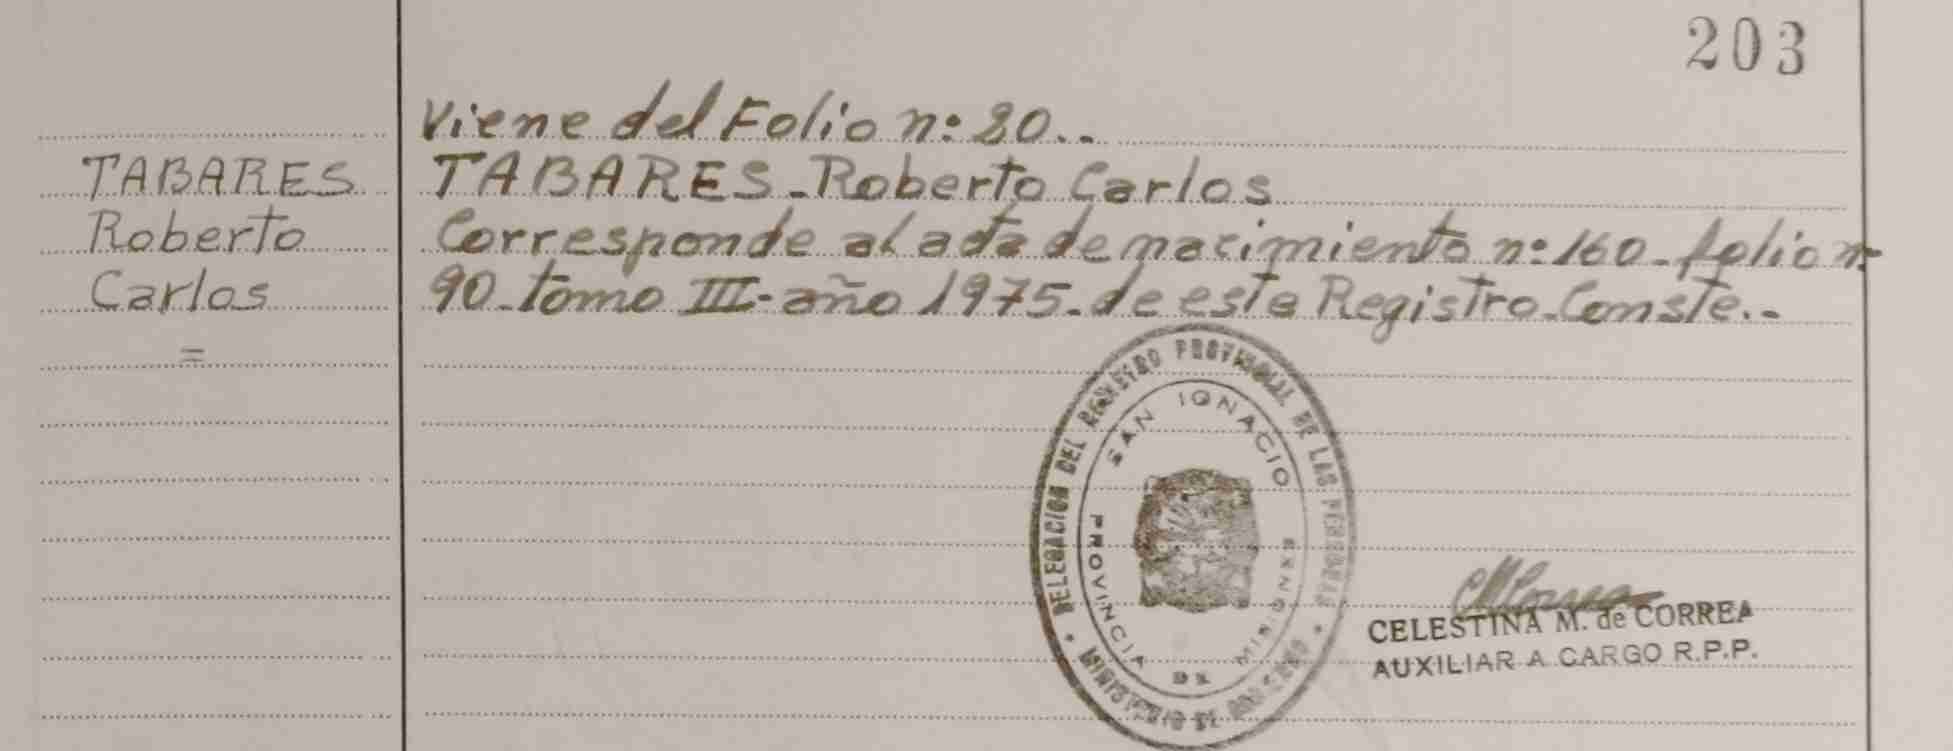 203
Viene del Folio n: 80..
TABARES
Roberto
Carlos
=
TABARES - Roberto Carlos
Corresponde al acta de nacimiento n: 160 - folio n:
90 - tomo III - año 1975 - de este Registro - Conste..-
DELEGACION DEL REGISTRO PROVINCIAL DE LAS PERSONAS
MINISTERIO DE GOBIERNO
SAN IGNACIO
PROVINCIA DE MISIONES
CELESTINA M. de CORREA
AUXILIAR A CARGO R.P.P.